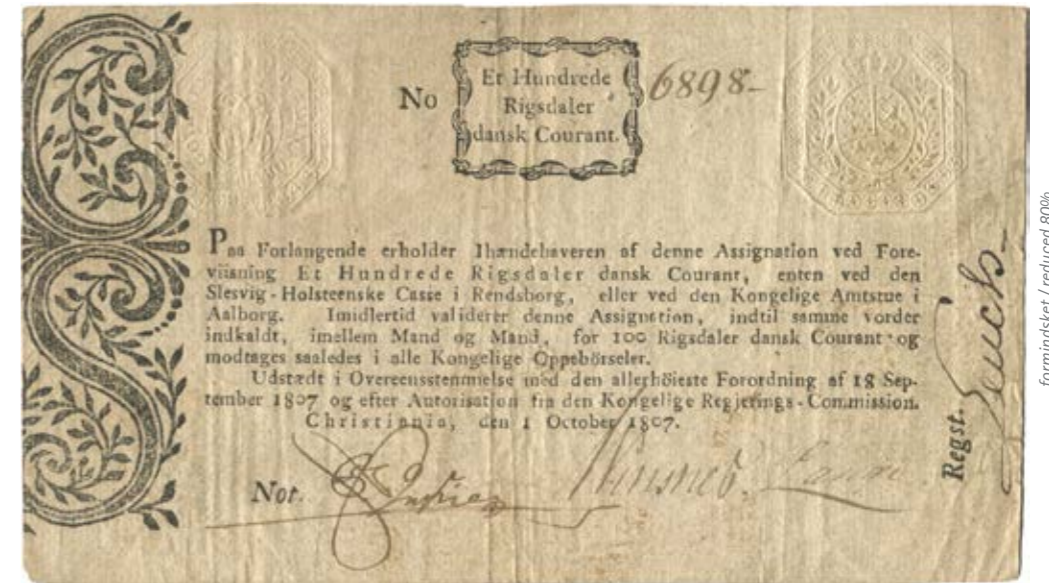 No
Et Hundrede
Rigsdaler
dansk Courant.
6898-
Paa Forlangende erholder Ihændehaveren af denne Assignation ved Fore-
viisning Et Hundrede Rigsdaler dansk Courant, enten ved den
Slesvig-Holsteenske Casse i Rendsborg, eller ved den Kongelige Amtstue i
Aalborg. Imidlertid validerer denne Assignation, indtil samme vorder
indkaldt, imellem Mand og Mand, for 100 Rigsdaler dansk Courant og
modtages saaledes i alle Kongelige Oppebörseler.
Udstædt i Overeensstemmelse med den allerhöieste Forordning af 18 Sep-
tember 1807 og efter Autorisation fra den Kongelige Regjerings-Commission.
Christiania, den 1 October 1807.
Not.
Regst.
formindsket / reduced 80%